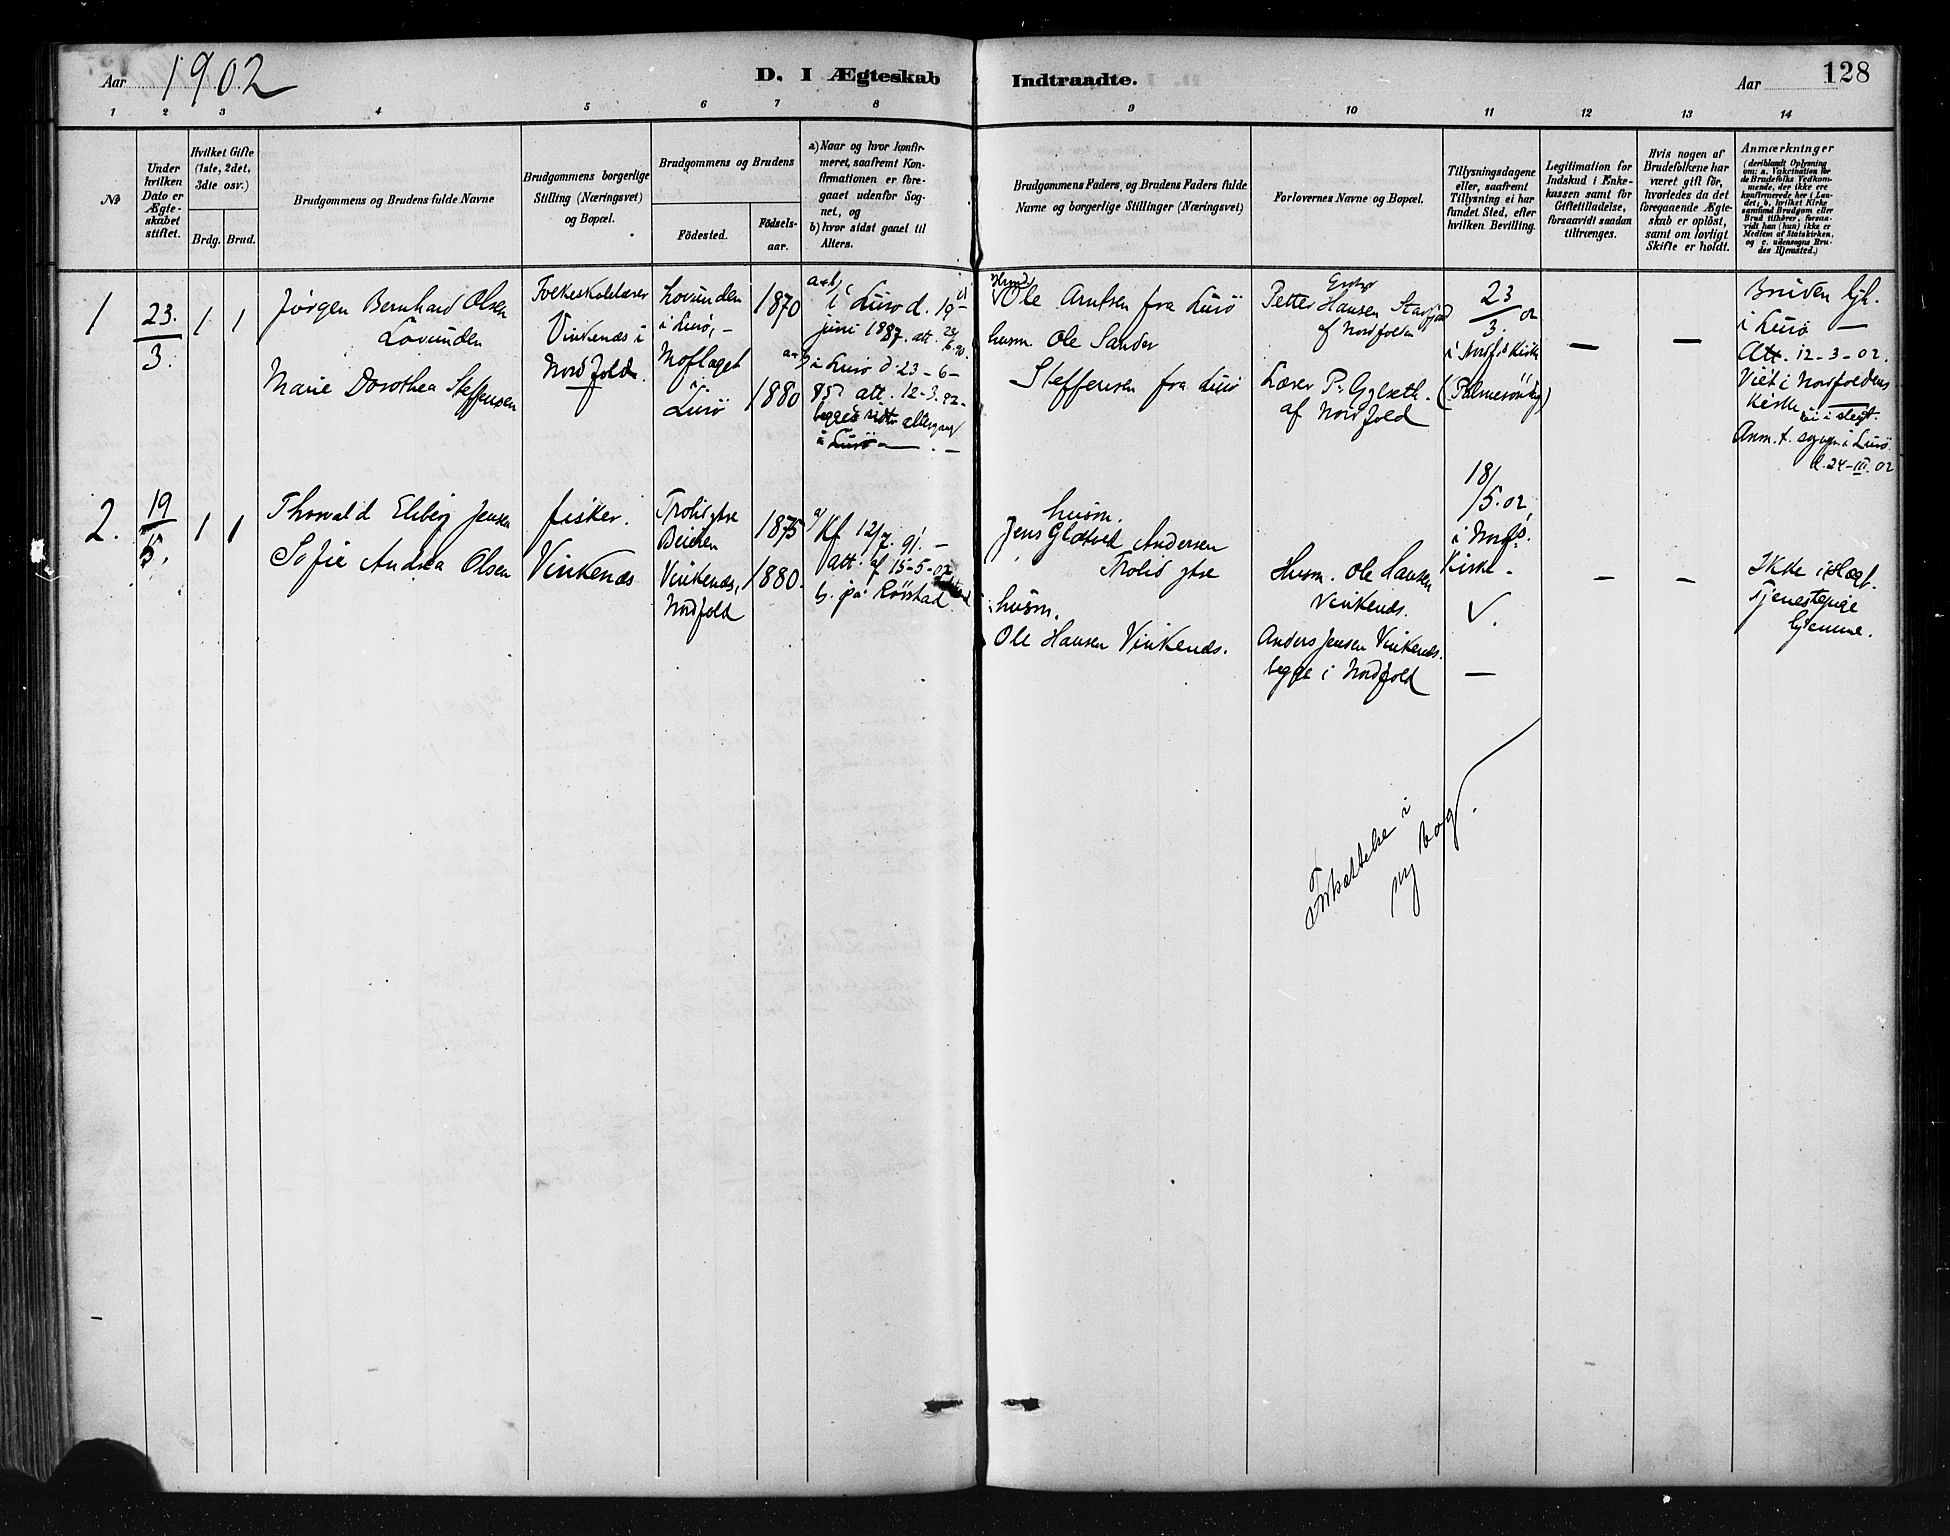 Aar 1902
D. I Ægteskab
Indtraadte.
Aar
128
1 2 3 4 5 6 7 8 9 10 11 12 13 14
No
Under hvilken Dato er Ægteskabet stiftet.
Hvilket Gifte (1ste, 2det, 3dte osv.)
Brdg. Brud.
Brudgommens og Brudens fulde Navne
Brudgommens borgerlige Stilling (Næringsvei) og Bopæl.
Brudgommens og Brudens
Födested.
Födsels-aar.
a) Naar og hvor konfirmeret, saafremt Konfirmationen er foregaaet udenfor Sognet, og
b) hvor sidst gaaet til Alters.
Brudgommens Faders, og Brudens Faders fulde Navne og borgerlige Stillinger (Næringsvei)
Forlovernes Navne og Bopæl.
Tillysningsdagene eller, saafremt Tillysning ei har fundet Sted, efter hvilken Bevilling.
Legitimation for Indskud i Enkekassen samt för Giftetilladelse, forsaavidt saadan tiltrænges.
Hvis nogen af Brudefolkene har været gift för, hvorledes da det foregaaende Ægteskab er oplöst, samt om lovligt Skifte er holdt.
Anmærkninger
(deriblandt Oplysning om: a. Vakcination for de Brudefolks Vedkommende, der ikke ere konfirmerede her i Landet; b. hvilket Kirkesamfund Brudgom eller Brud tilhörer, forsaavidt han (hun) ikke er Medlem af Statskirken, og c. udensogns Brudes Hjemsted.)
1
23.
3.
1 1
Jørgen Bernhard Olsen
Lovunden
Marie Dorothea Steffensen
Folkeskolelærer
Vinkenæs i
Nordfold.
Lovunden
i Lurø, –
Moflaget
i
Lurø
1870
1880
a+b)
i Lurø d. 19
juni 1887. att.
i Lurø d. 23-6-
95 att. 12-3.02.
begges sidste altergang
i Lurø
Ole Arntsen fra Lurø
husm. Ole Sander
Steffensen fra Lurø
Petter Hansen
af Nordfolden
Lærer P. Gylseth
af Nordfold
23/3. 02
i Nordf. Kirke
(Palmesøndag)
– –
Bruden hjh.
i Lurø –
Att. 12-3-02.
Viet i Nordfoldens
Kirke
ei i slegt.
Anm. t. sogn. i Lurø
d. 24-III 02
2.
19
5.
1 1
Thorvald Eliberg Jensen
Sofie Andrea Olsen
fisker.
Vinkenæs
Trolid ytre
Beieren
Vinkenæs,
Nordfold
1875
1880.
a) Kf 12/7. 91. –
att. af 15-5-02
b. på Rørstad
husm.
Jens Andersen
Trolid ytre
husm.
Ole Hansen Vinkenæs.
Husm. Ole Hansen
Vinkenæs.
Anders Jensen Vinkenæs.
begge i Nordfold
18/5. 02,
i Nordf.
Kirke –
–
– –
Ikke i slægt.
Tjenestepige
hjemme.
Fortsættelse i
ny bog.